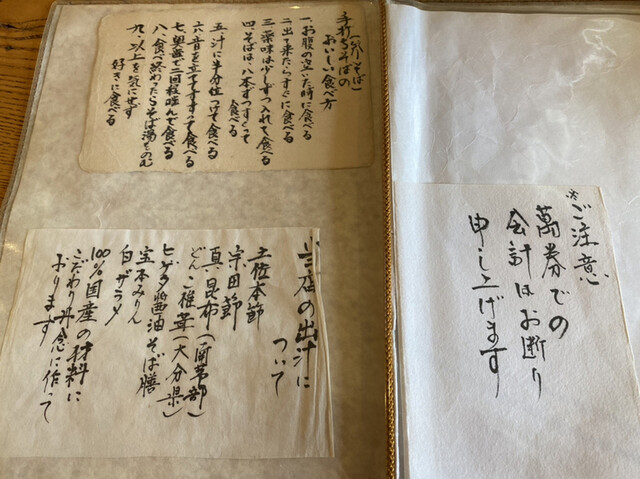 手打ちそばの
おいしい食べ方
一、お腹の空いた時に食べる
二、出て来たらすぐに食べる
三、薬味は少しずつ入れて食べる
四、そばは、八本ずつすくって
食べる
五、汁に半分位つけて食べる
六、音を立ててすすって食べる
七、奥歯で二回程噛んで食べる
八、食べ終わったらそば湯をのむ
九、以上を気にせず
好きに食べる
当店の出汁に
ついて
土佐本節
宗田節
真昆布(南茅部)
どんこ椎茸(大分県)
ヒゲタ醤油そば膳
宝本みりん
白ザラメ
100%国産の材料に
こだわり丹念に作って
おります
※ご注意
萬券での
会計はお断り
申し上げます